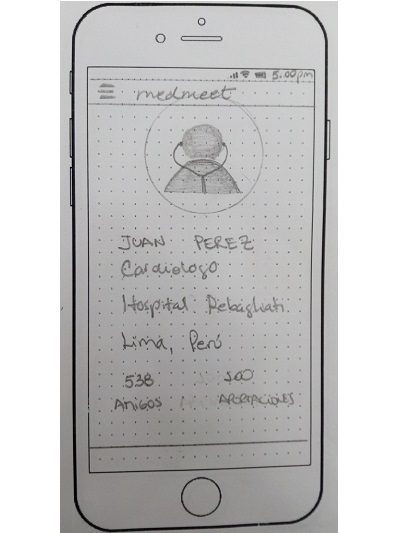 5:00pm
medmeet
JUAN PEREZ
Cardiologo
Hospital Rebagliati
Lima, Perú
538
AMIGOS APORTACIONES